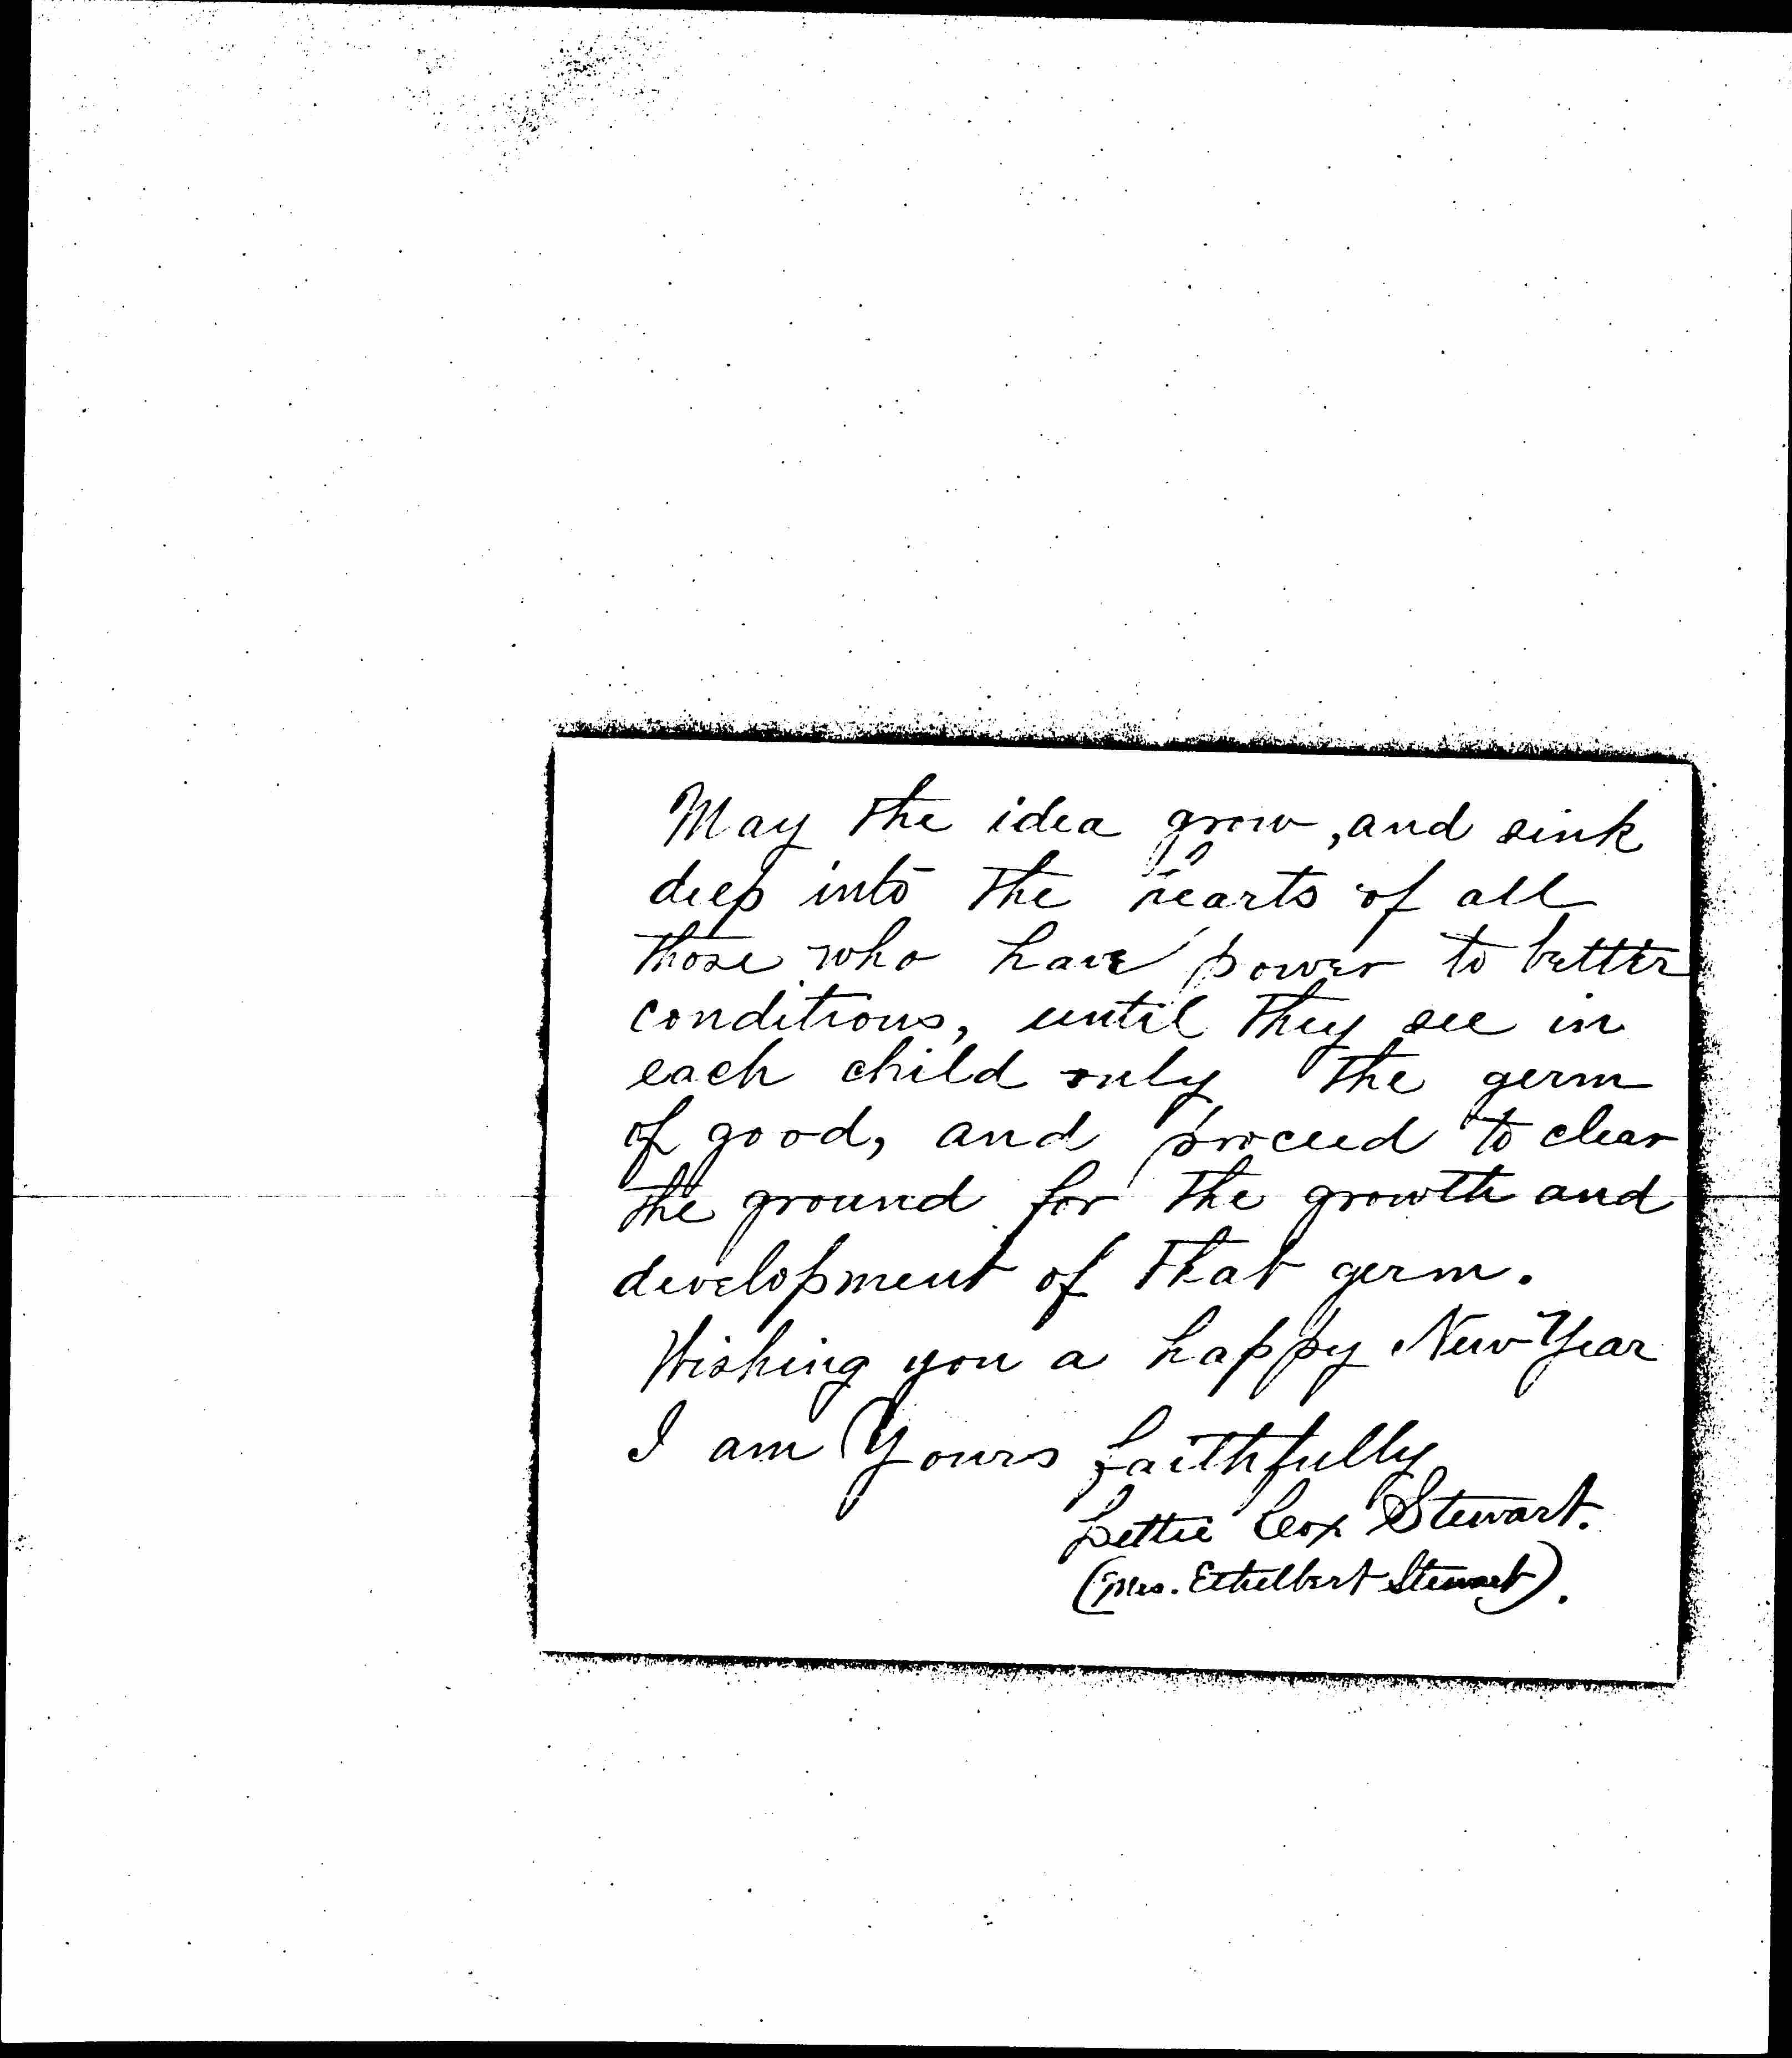 May the idea grow, and sink
deep into the hearts of all
those who have power to better
conditions, until they see in
each child only the germ
of good, and proceed to clear
the ground for the growth and
development of that germ.
Wishing you a happy New Year
I am Yours faithfully
Lettie Cox Stewart.
(Mrs. Ethelbert Stewart).